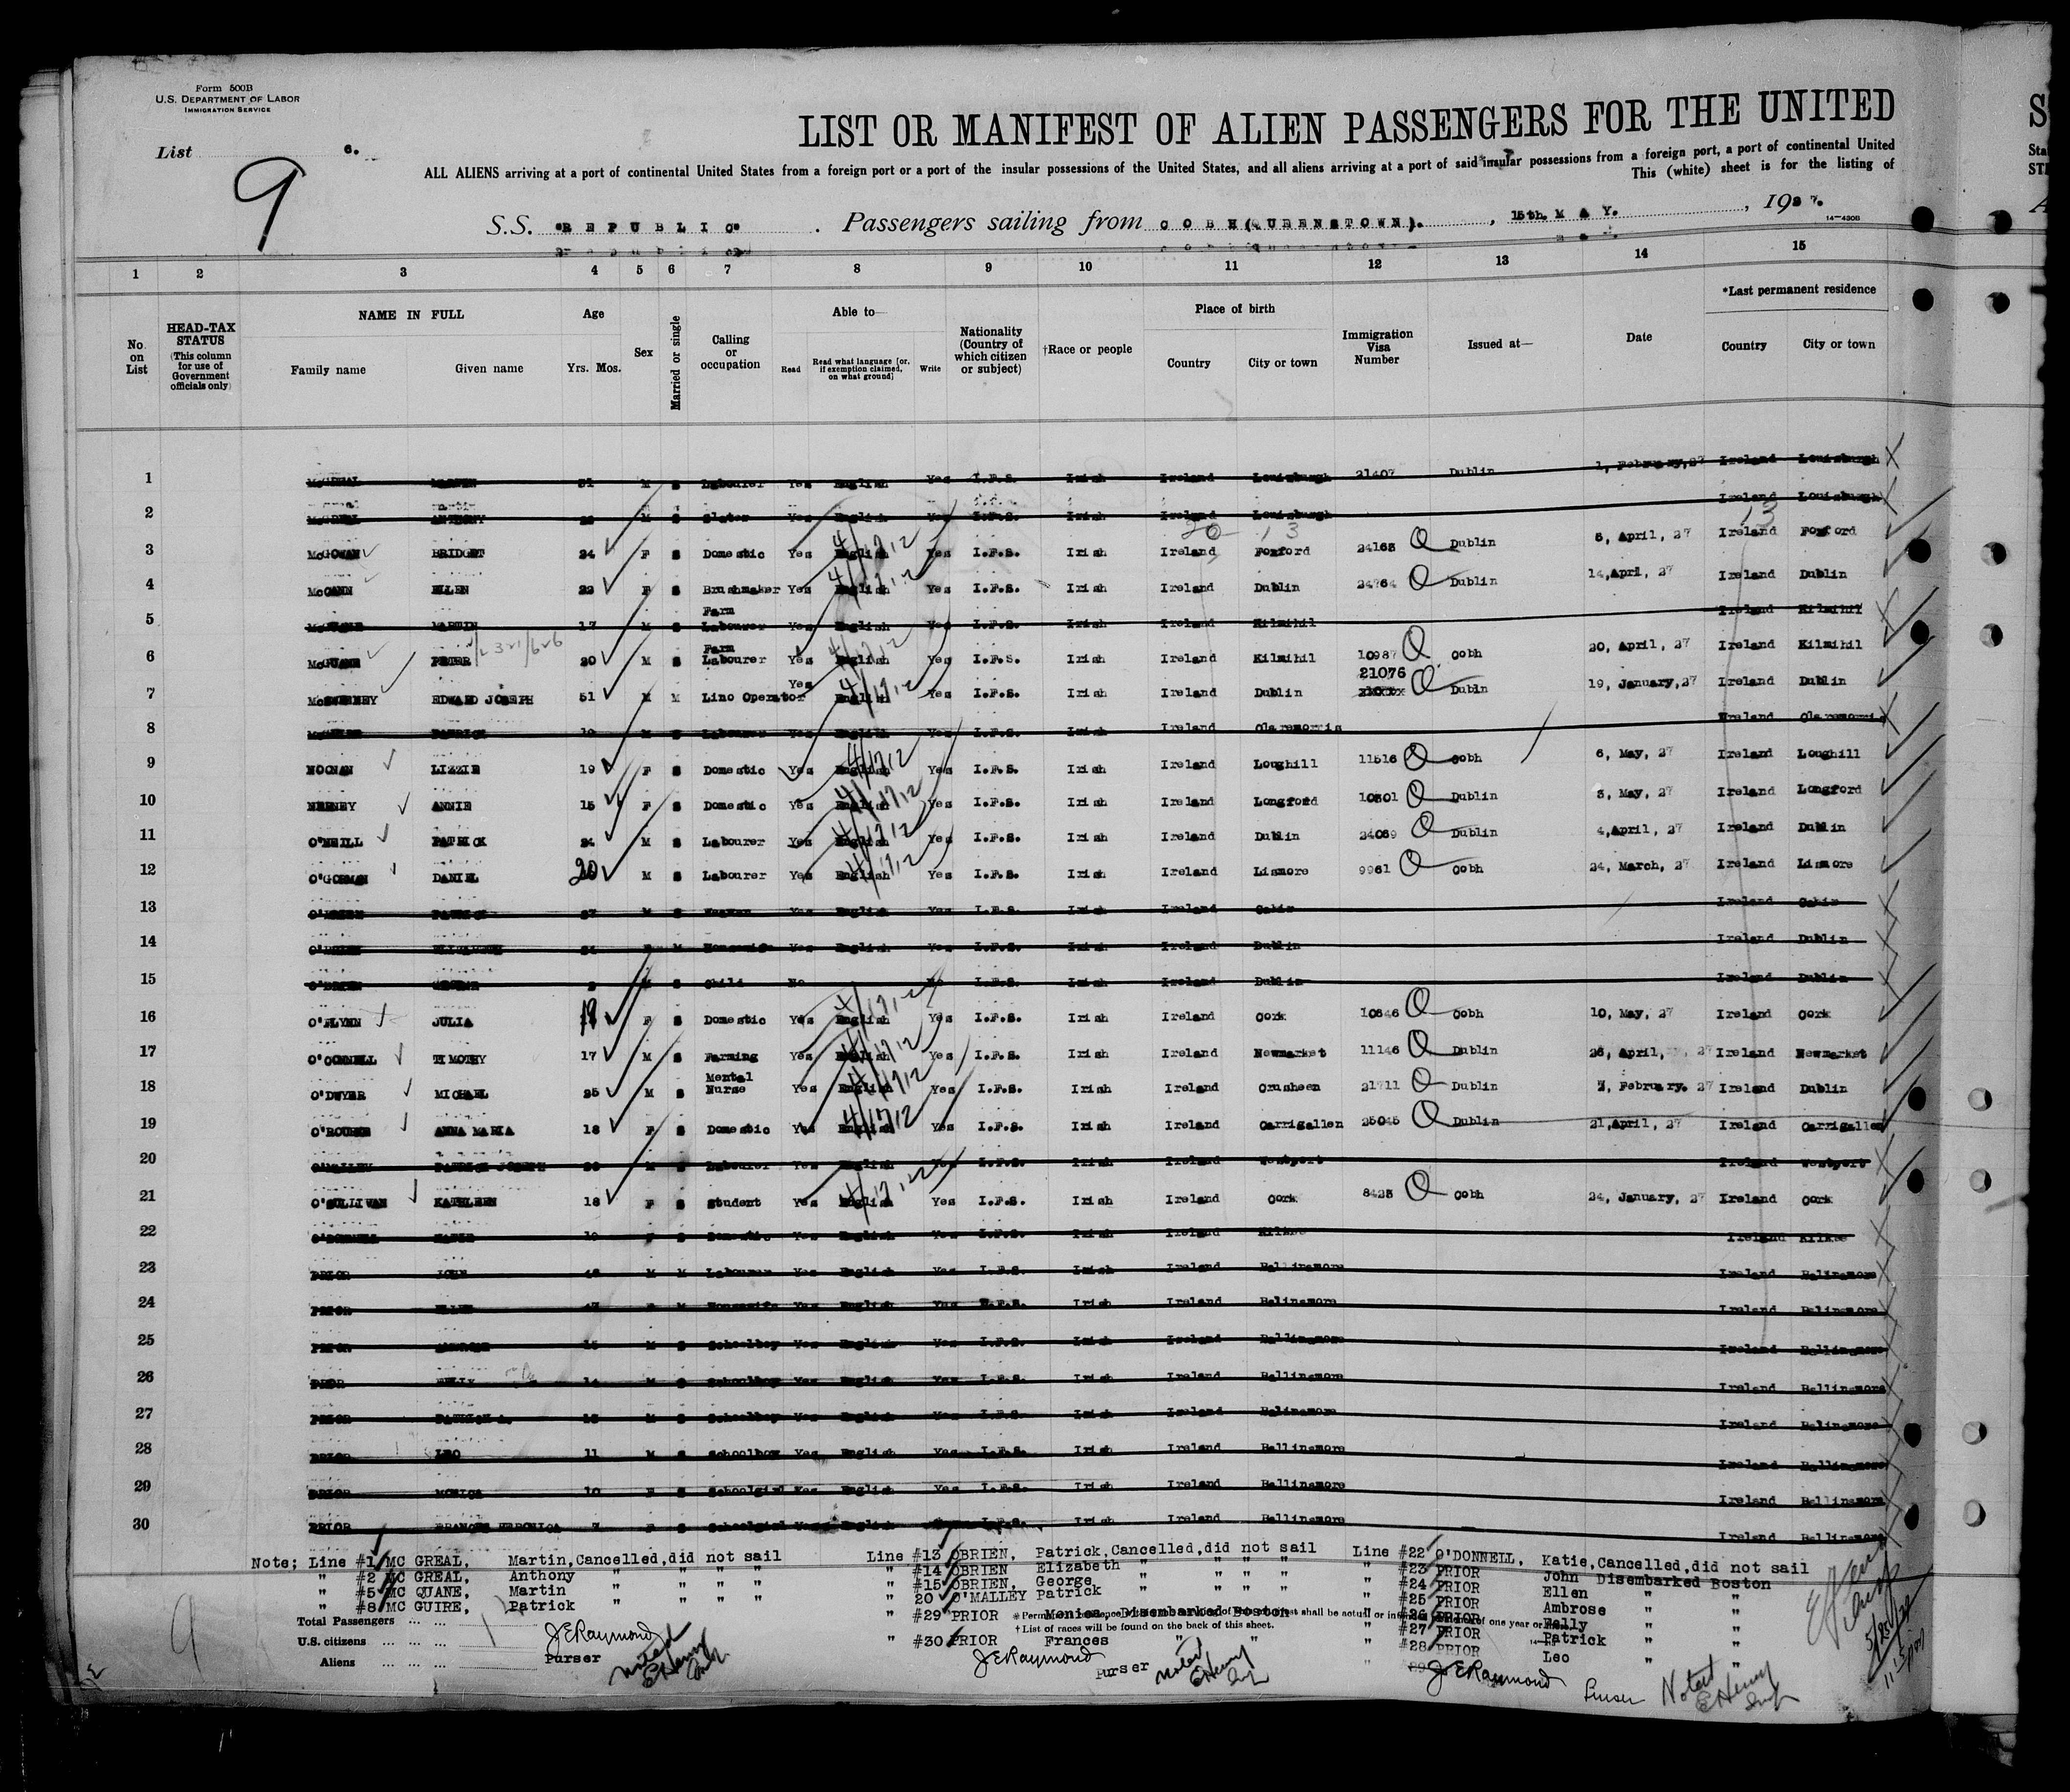 Form 500B
U.S. DEPARTMENT OF LABOR
IMMIGRATION SERVICE
List 6.
9
LIST OR MANIFEST OF ALIEN PASSENGERS FOR THE UNITED
ALL ALIENS arriving at a port of continental United States from a foreign port or a port of the insular possessions of the United States, and all aliens arriving at a port of said insular possessions from a foreign port, a port of continental United
This (white) sheet is for the listing of
S.S. "REPUBLIC" . Passengers sailing from COBH(QUEENSTOWN). , 15th. MAY. , 1927.
14—430B
1 2 3 4 5 6 7 8 9 10 11 12 13 14 15
No. on List
HEAD-TAX STATUS (This column for use of Government officials only)
NAME IN FULL
Family name Given name
Age
Yrs. Mos.
Sex
Married or single
Calling or occupation
Able to—
Read Read what language [or, if exemption claimed, on what ground] Write
Nationality (Country of which citizen or subject)
†Race or people
Place of birth
Country City or town
Immigration Visa Number
Issued at—
Date
*Last permanent residence
Country City or town
1 McGREAL MARTIN 31 M S Labourer Yes English Yes I.F.S. Irish Ireland Louisburgh 21407 Dublin 1, February,27 Ireland Louisburgh
2 McGREAL ANTHONY M S Yes English Yes I.F.S. Irish Ireland Louisburgh Ireland Louisburgh
3 McGOWAN BRIDGET 24 F S Domestic Yes English Yes I.F.S. Irish Ireland Foxford 24163 Dublin 5, April, 27 Ireland Foxford
4 McCANN ELLEN 22 F S Brushmaker Yes English Yes I.F.S. Irish Ireland Dublin 24764 Dublin 14,April, 27 Ireland Dublin
5 MARTIN 17 M S Farm Labourer Yes English Yes I.F.S. Irish Ireland Kilmihil Ireland Kilmihil
6 McQUANE PETER 20 M S Farm Labourer Yes English Yes I.F.S. Irish Ireland Kilmihil 10987 Cobh 20, April, 27 Ireland Kilmihil
7 McSWEENEY EDWARD JOSEPH 51 M M Lino Operator Yes English Yes I.F.S. Irish Ireland Dublin 21076 Dubln 19, January,27 Ireland Dublin
8 McGUIRE PATRICK 19 M S Labourer Yes English Yes I.F.S. Irish Ireland Claremorris Ireland Claremorris
9 NOONAN LIZZIE 19 F S Domestic Yes English Yes I.F.S. Irish Ireland Loughill 11516 Cobh 6, May, 27 Ireland Loughill
10 NERNEY ANNIE 15 F S Domestic Yes English Yes I.F.S. Irish Ireland Longford 10301 Dublin 3, May, 27 Ireland Longford
11 O'NEILL PATRICK 24 M S Labourer Yes English Yes I.F.S. Irish Ireland Dublin 24089 Dublin 4,April, 27 Ireland Dublin
12 O'GORMAN DANIEL 20 M S Labourer Yes English Yes I.F.S. Irish Ireland Lismore 9961 Cobh 24, March, 27 Ireland Lismore
13 O'BRIEN PATRICK 27 M S Yes English Yes I.F.S. Irish Ireland Cahir Ireland Cahir
14 O'BRIEN ELIZABETH F M Housewife Yes English Yes I.F.S. Irish Ireland Dublin Ireland Dublin
15 O'BRIEN GEORGE M S Child No No I.F.S. Irish Ireland Dublin Ireland Dublin
16 O'FLYNN JULIA 19 F S Domestic Yes English Yes I.F.S. Irish Ireland Cork 10846 Cobh 10, May, 27 Ireland Cork
17 O'CONNELL TIMOTHY 17 M S Farming Yes English Yes I.F.S. Irish Ireland Newmarket 11146 Dublin 26, April, 27 Ireland Newmarket
18 O'DWYER MICHAEL 25 M S Mental Nurse Yes English Yes I.F.S. Irish Ireland Crusheen 21711 Dublin 7, February. 27 Ireland Dublin
19 O'ROURKE ANNA MARIA 18 F S Domestic Yes English Yes I.F.S. Irish Ireland Carrigallen 25045 Dublin 21,April, 27 Ireland Carrigallen
20 O'MALLEY PATRICK JOSEPH M S Labourer Yes English Yes I.F.S. Irish Ireland Westport Ireland Westport
21 O'SULLIVAN KATHLEEN 18 F S Student Yes English Yes I.F.S. Irish Ireland Cork 8425 Cobh 24, January, 27 Ireland Cork
22 O'DONNELL KATIE 19 F S Domestic Yes English Yes I.F.S. Irish Ireland Kilkee Ireland Kilkee
23 PRIOR JOHN M M Labourer Yes English Yes I.F.S. Irish Ireland Ballinamore Ireland Balinamore
24 PRIOR ELLEN 47 F M Housewife Yes English Yes I.F.S. Irish Ireland Balinamore Ireland Balinamore
25 PRIOR AMBROSE M S Schoolboy Yes English Yes I.F.S. Irish Ireland Ballinamore Ireland Ballinamore
26 PRIOR FELLY 14 M S Schoolboy Yes English Yes I.F.S. Irish Ireland Ballinamore Ireland Ballinamore
27 PRIOR PATRICK A. M S Schoolboy Yes English Yes I.F.S. Irish Ireland Balinamore Ireland Balinamore
28 PRIOR LEO 11 M S Schoolboy Yes English Yes I.F.S. Irish Ireland Ballinamore Ireland Ballinamore
29 PRIOR MONICA 10 F S Schoolgirl Yes English Yes I.F.S. Irish Ireland Ballinamore Ireland Ballinamore
30 PRIOR FRANCES VERONICA 7 F S Schoolgirl Yes English I.F.S. Irish Ireland Ballinamore Ireland Ballinamore
Note; Line #1 MC GREAL, Martin,Cancelled,did not sail
" #2 MC GREAL, Anthony " " " "
" #5 MC QUANE, Martin " " " "
" #8 MC GUIRE, Patrick " " " "
Line #13 OBRIEN, Patrick,Cancelled,did not sail
" #14 OBRIEN Elizabeth " " " "
" #15 OBRIEN, George " " " "
" 20 O'MALLEY Patrick " " " "
" #29 PRIOR Monica Disembarked Boston
" #30 PRIOR Frances " "
Line #22 O'DONNELL, Katie,Cancelled,did not sail
" #23 PRIOR John Disembarked Boston
" #24 PRIOR Ellen " "
" #25 PRIOR Ambrose " "
" #26 PRIOR Felly " "
" #27 PRIOR Patrick " "
" #28 PRIOR Leo " "
Total Passengers
U.S. citizens
Aliens
† List of races will be found on the back of this sheet.
J.E.Raymond
Purser
Noted
E Henry
Insp
J.E.Raymond
Purser
Noted
E Henry
Insp
J.E.Raymond
Purser
Noted
E Henry
Insp
9